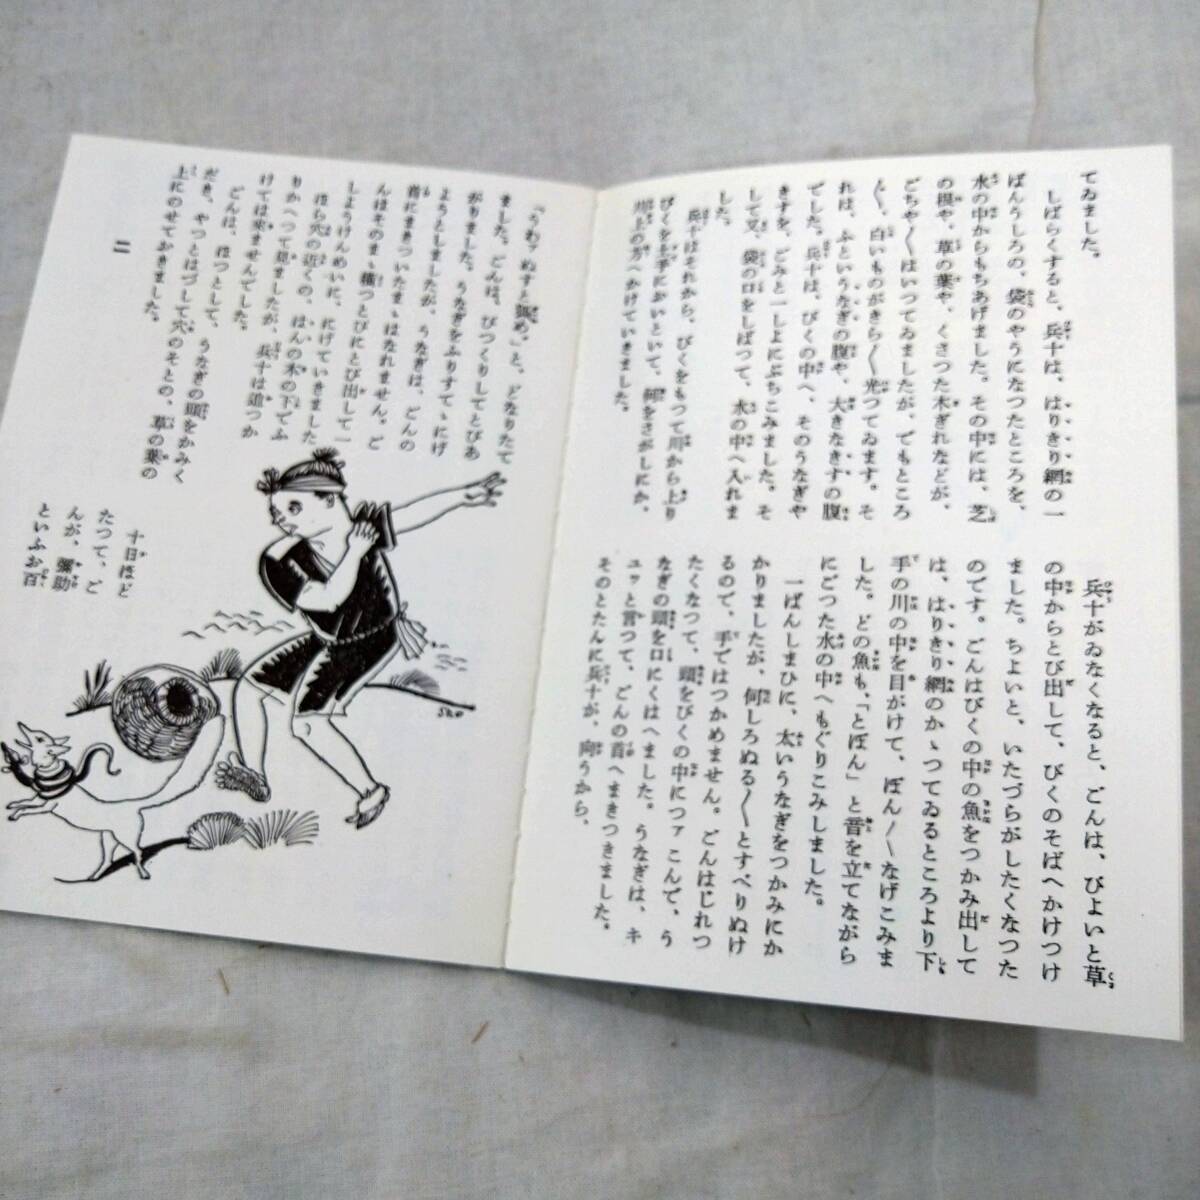 てゐました。
しばらくすると、兵十は、はりきり網の一
ばんうしろの、袋のやうになつたところを、
水の中からもちあげました。その中には、芝
の根や、草の葉や、くさつた木ぎれなどが、
ごちや〱はいつてゐましたが、でもところ
〲、白いものがきら〱光つてゐます。そ
れは、ふというなぎの腹や、大きなきすの腹
でした。兵十は、びくの中へ、そのうなぎや
きすを、ごみと一しよにぶちこみました。そ
して又、袋の口をしばつて、水の中へ入れま
した。
兵十はそれから、びくをもつて川から上り
びくを土手においといて、何をさがしにか、
川上の方へかけていきました。
兵十がゐなくなると、ごんは、ぴよいと草
の中からとび出して、びくのそばへかけつけ
ました。ちよいと、いたづらがしたくなつた
のです。ごんはびくの中の魚をつかみ出して
は、はりきり網のかゝつてゐるところより下
手の川の中を目がけて、ぽん〱なげこみま
した。どの魚も、「とぼん」と音を立てながら
にごつた水の中へもぐりこみしました。
一ばんしまひに、太いうなぎをつかみにか
かりましたが、何しろぬる〱とすべりぬけ
るので、手ではつかめません。ごんはじれつ
たくなつて、頭をびくの中につツこんで、う
なぎの頭を口にくはへました。うなぎは、キ
ユツと言つて、ごんの首へまきつきました。
そのとたんに兵十が、向うから、
「うわアぬすと狐め。」と、どなりたて
ました。ごんは、びつくりしてとびあ
がりました。うなぎをふりすてゝにげ
ようとしましたが、うなぎは、ごんの
首にまきついたまゝはなれません。ご
んはそのまゝ横つとびにとび出して一
しようけんめいに、にげていきました
ほら穴の近くの、はんの木の下でふ
りかへつて見ましたが、兵十は追つか
けては来ませんでした。
ごんは、ほつとして、うなぎの頭をかみく
だき、やつとはづして穴のそとの、草の葉の
上にのせておきました。
二
十日ほど
たつて、ご
んが、彌助
といふお百